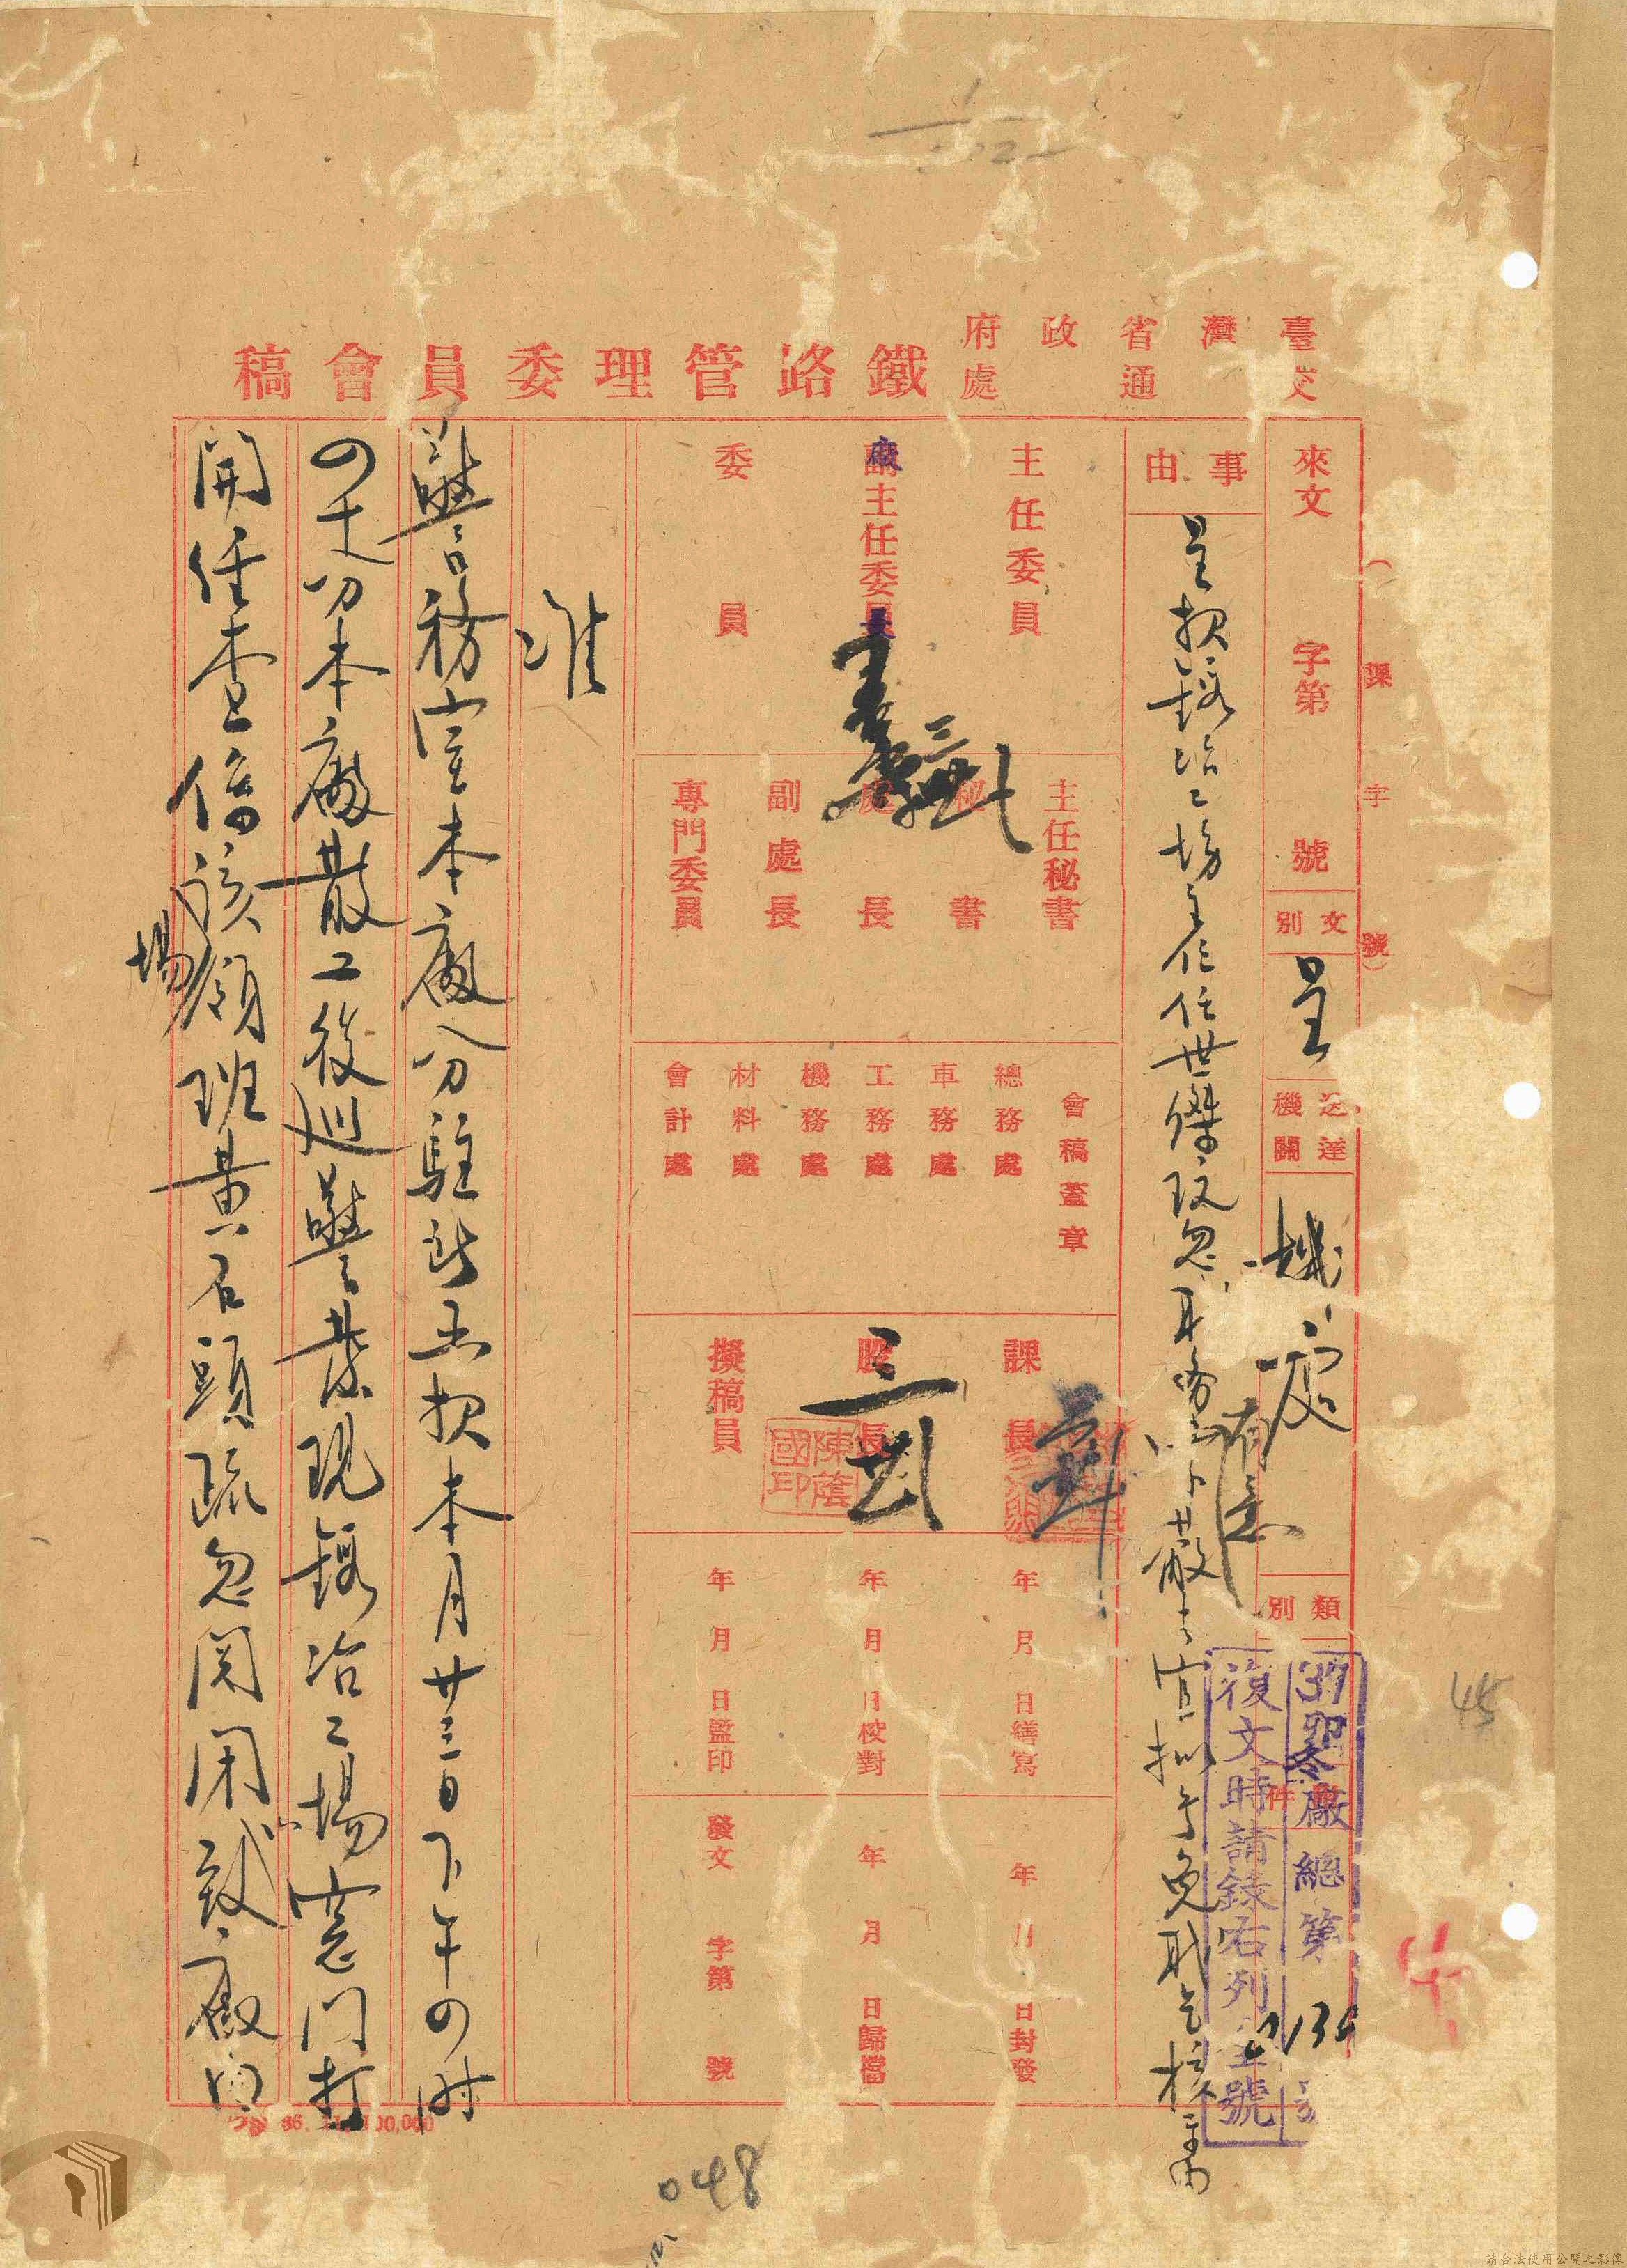 臺灣省政府
交通處
鐵路管理委員會稿
（課字號）
來文 字第 號
文別 呈
送達機關 機 處
類別
件
39卯冬廠總第
復文時請錄右列
號
事由
呈報鎔冶工場主任任世傑玩忽 擬予免職乞核 由
主任委員
廠
副主任委員
長
委員
主任秘書
秘書
處長
副處長
專門委員
會稿蓋章
總務處
車務處
工務處
機務處
材料處
會計處
課長
股長
擬稿員
陳蔭國印
年月日繕寫
年月日校對
年月日監印
年月日封發
年月日歸檔
發文 字第 號
准
警務室本廠分駐所函報本月廿三日下午四時
四十八分本廠散工後巡警發現鎔冶工場窓門打
開任查係該場領班黃石頭疏忽関閉致廠內
048
45